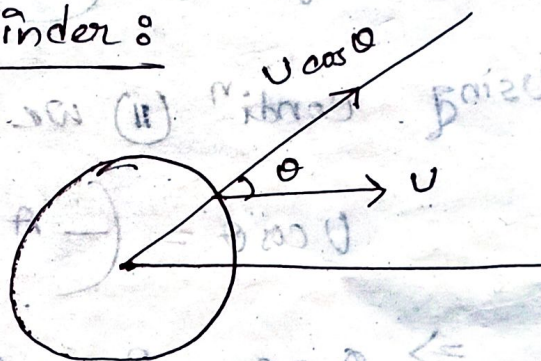 inder :
U cos θ
θ
U